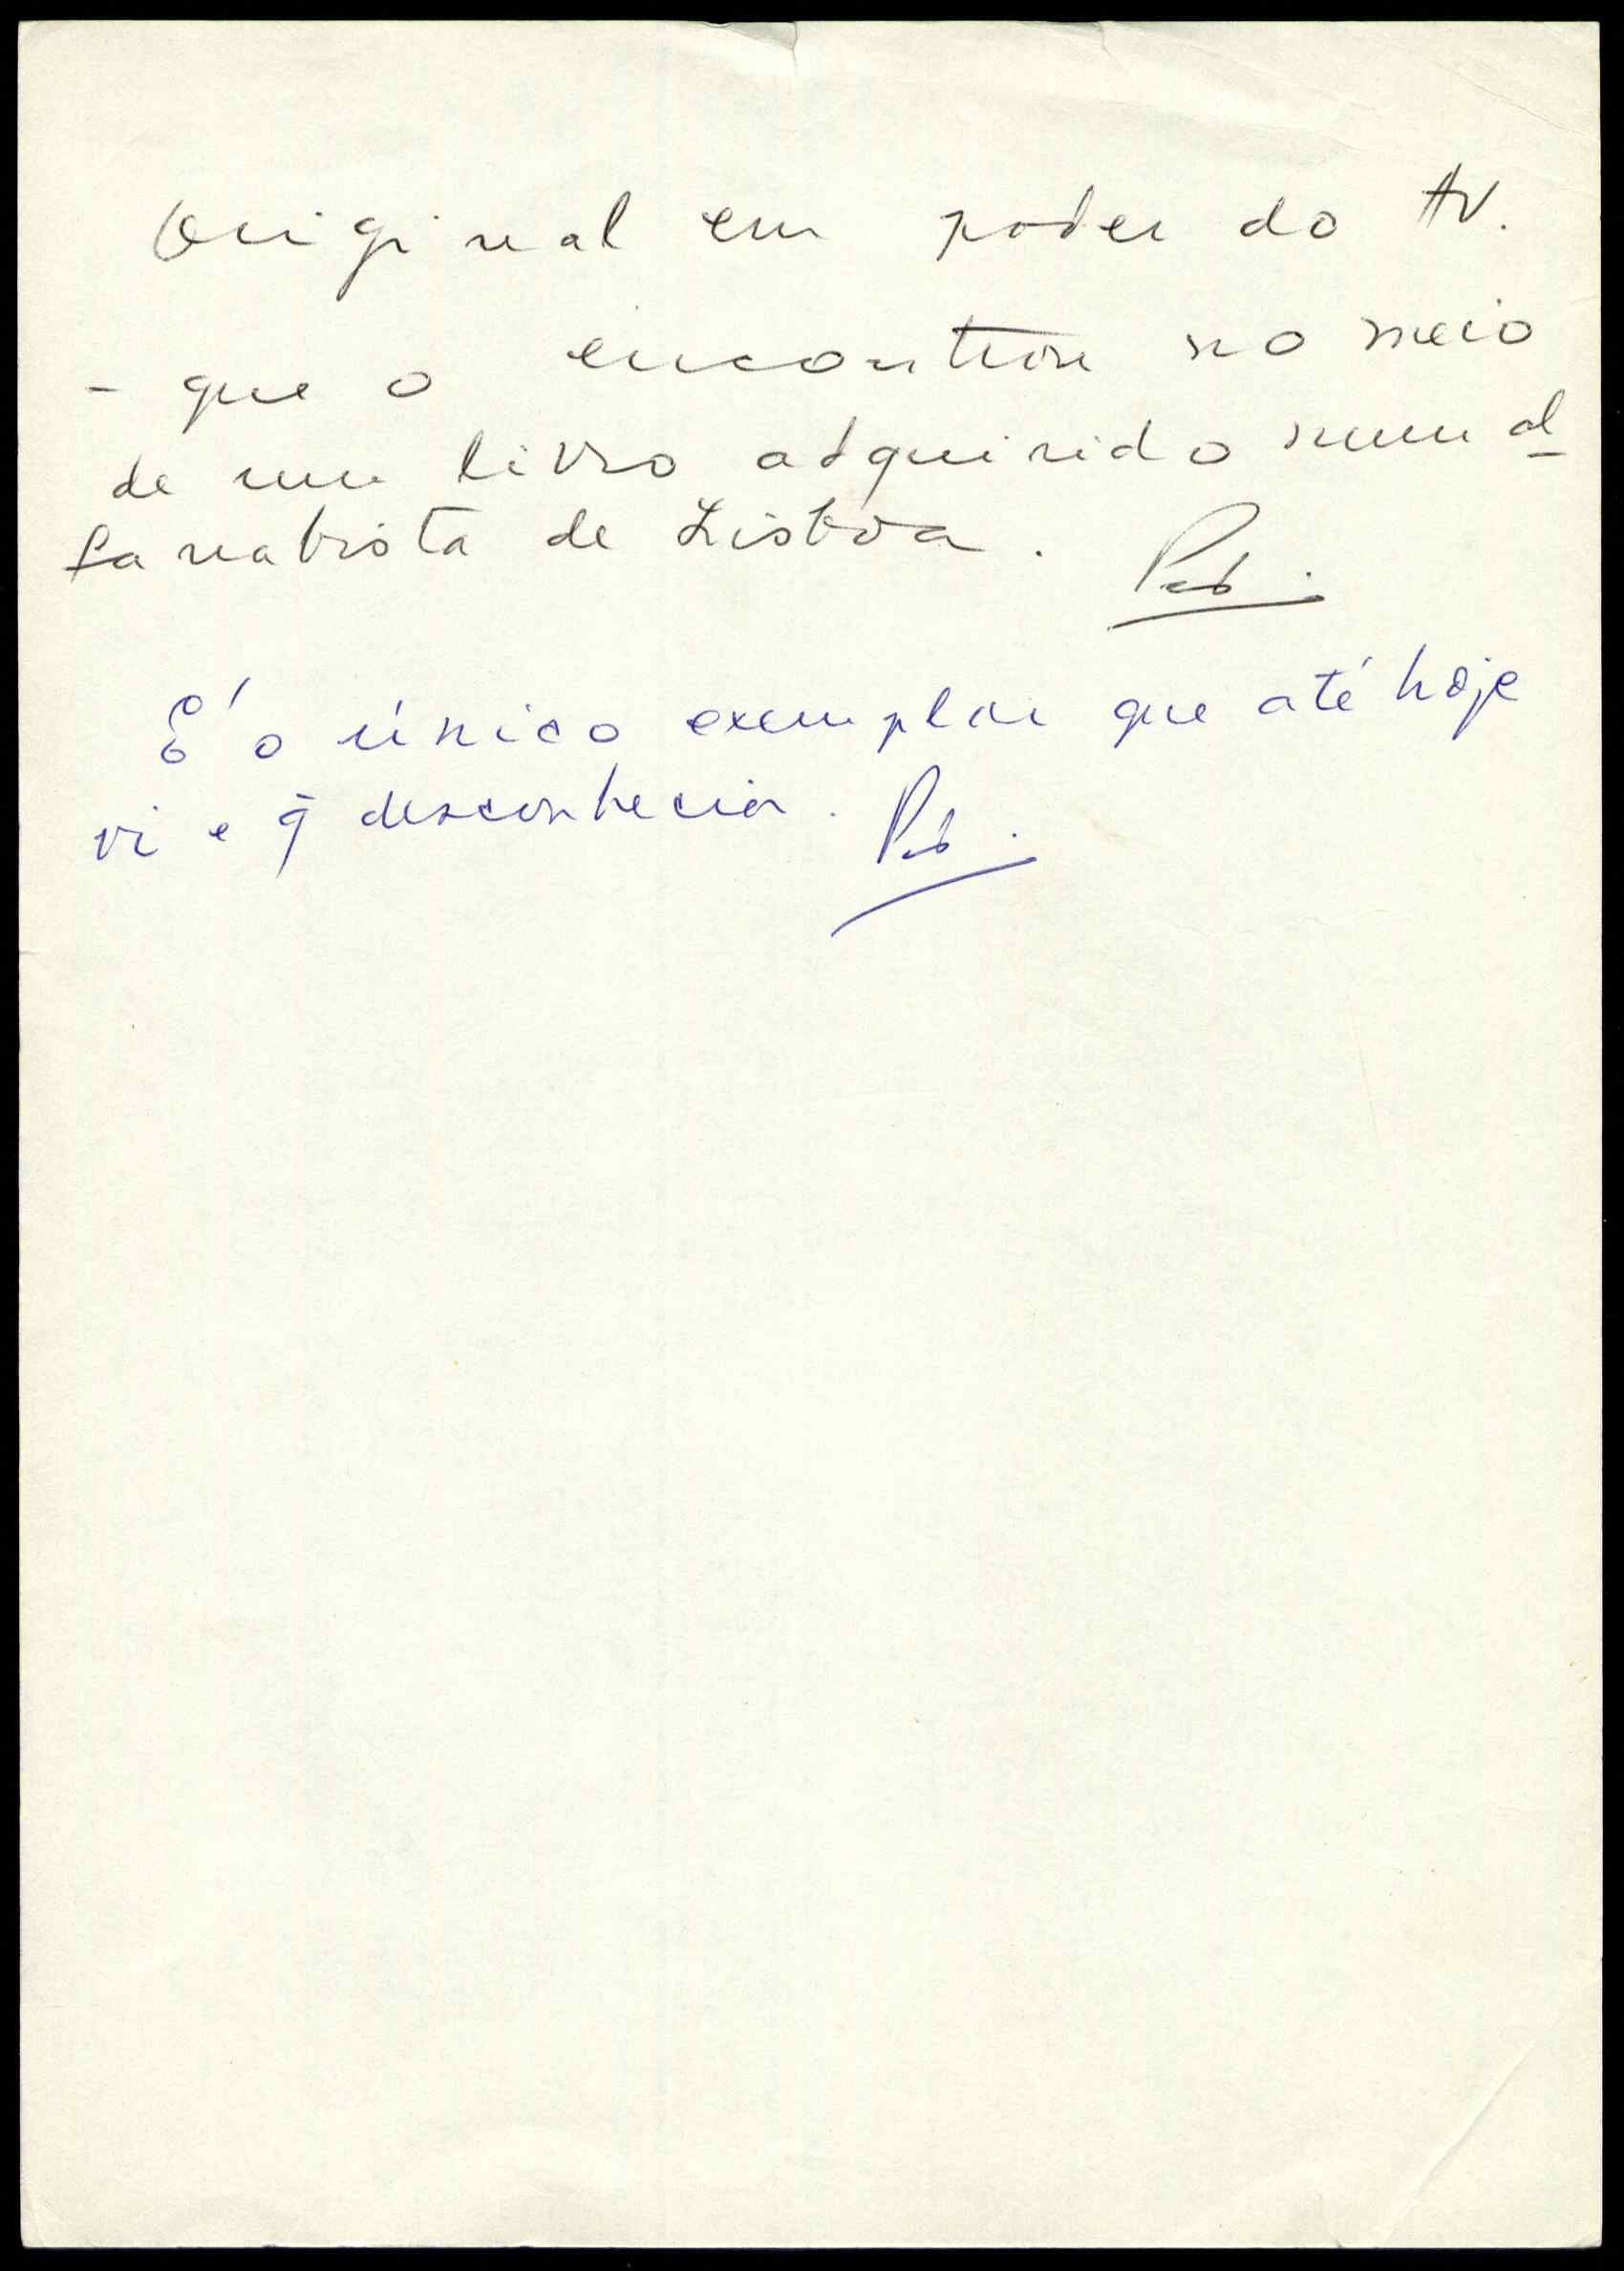 Original em poder do AV.
- que o encontrou no meio
de um livro adquirido num al
farrabista de Lisboa.
É o único exemplar que até hoje
vi e q̃ desconhecia.